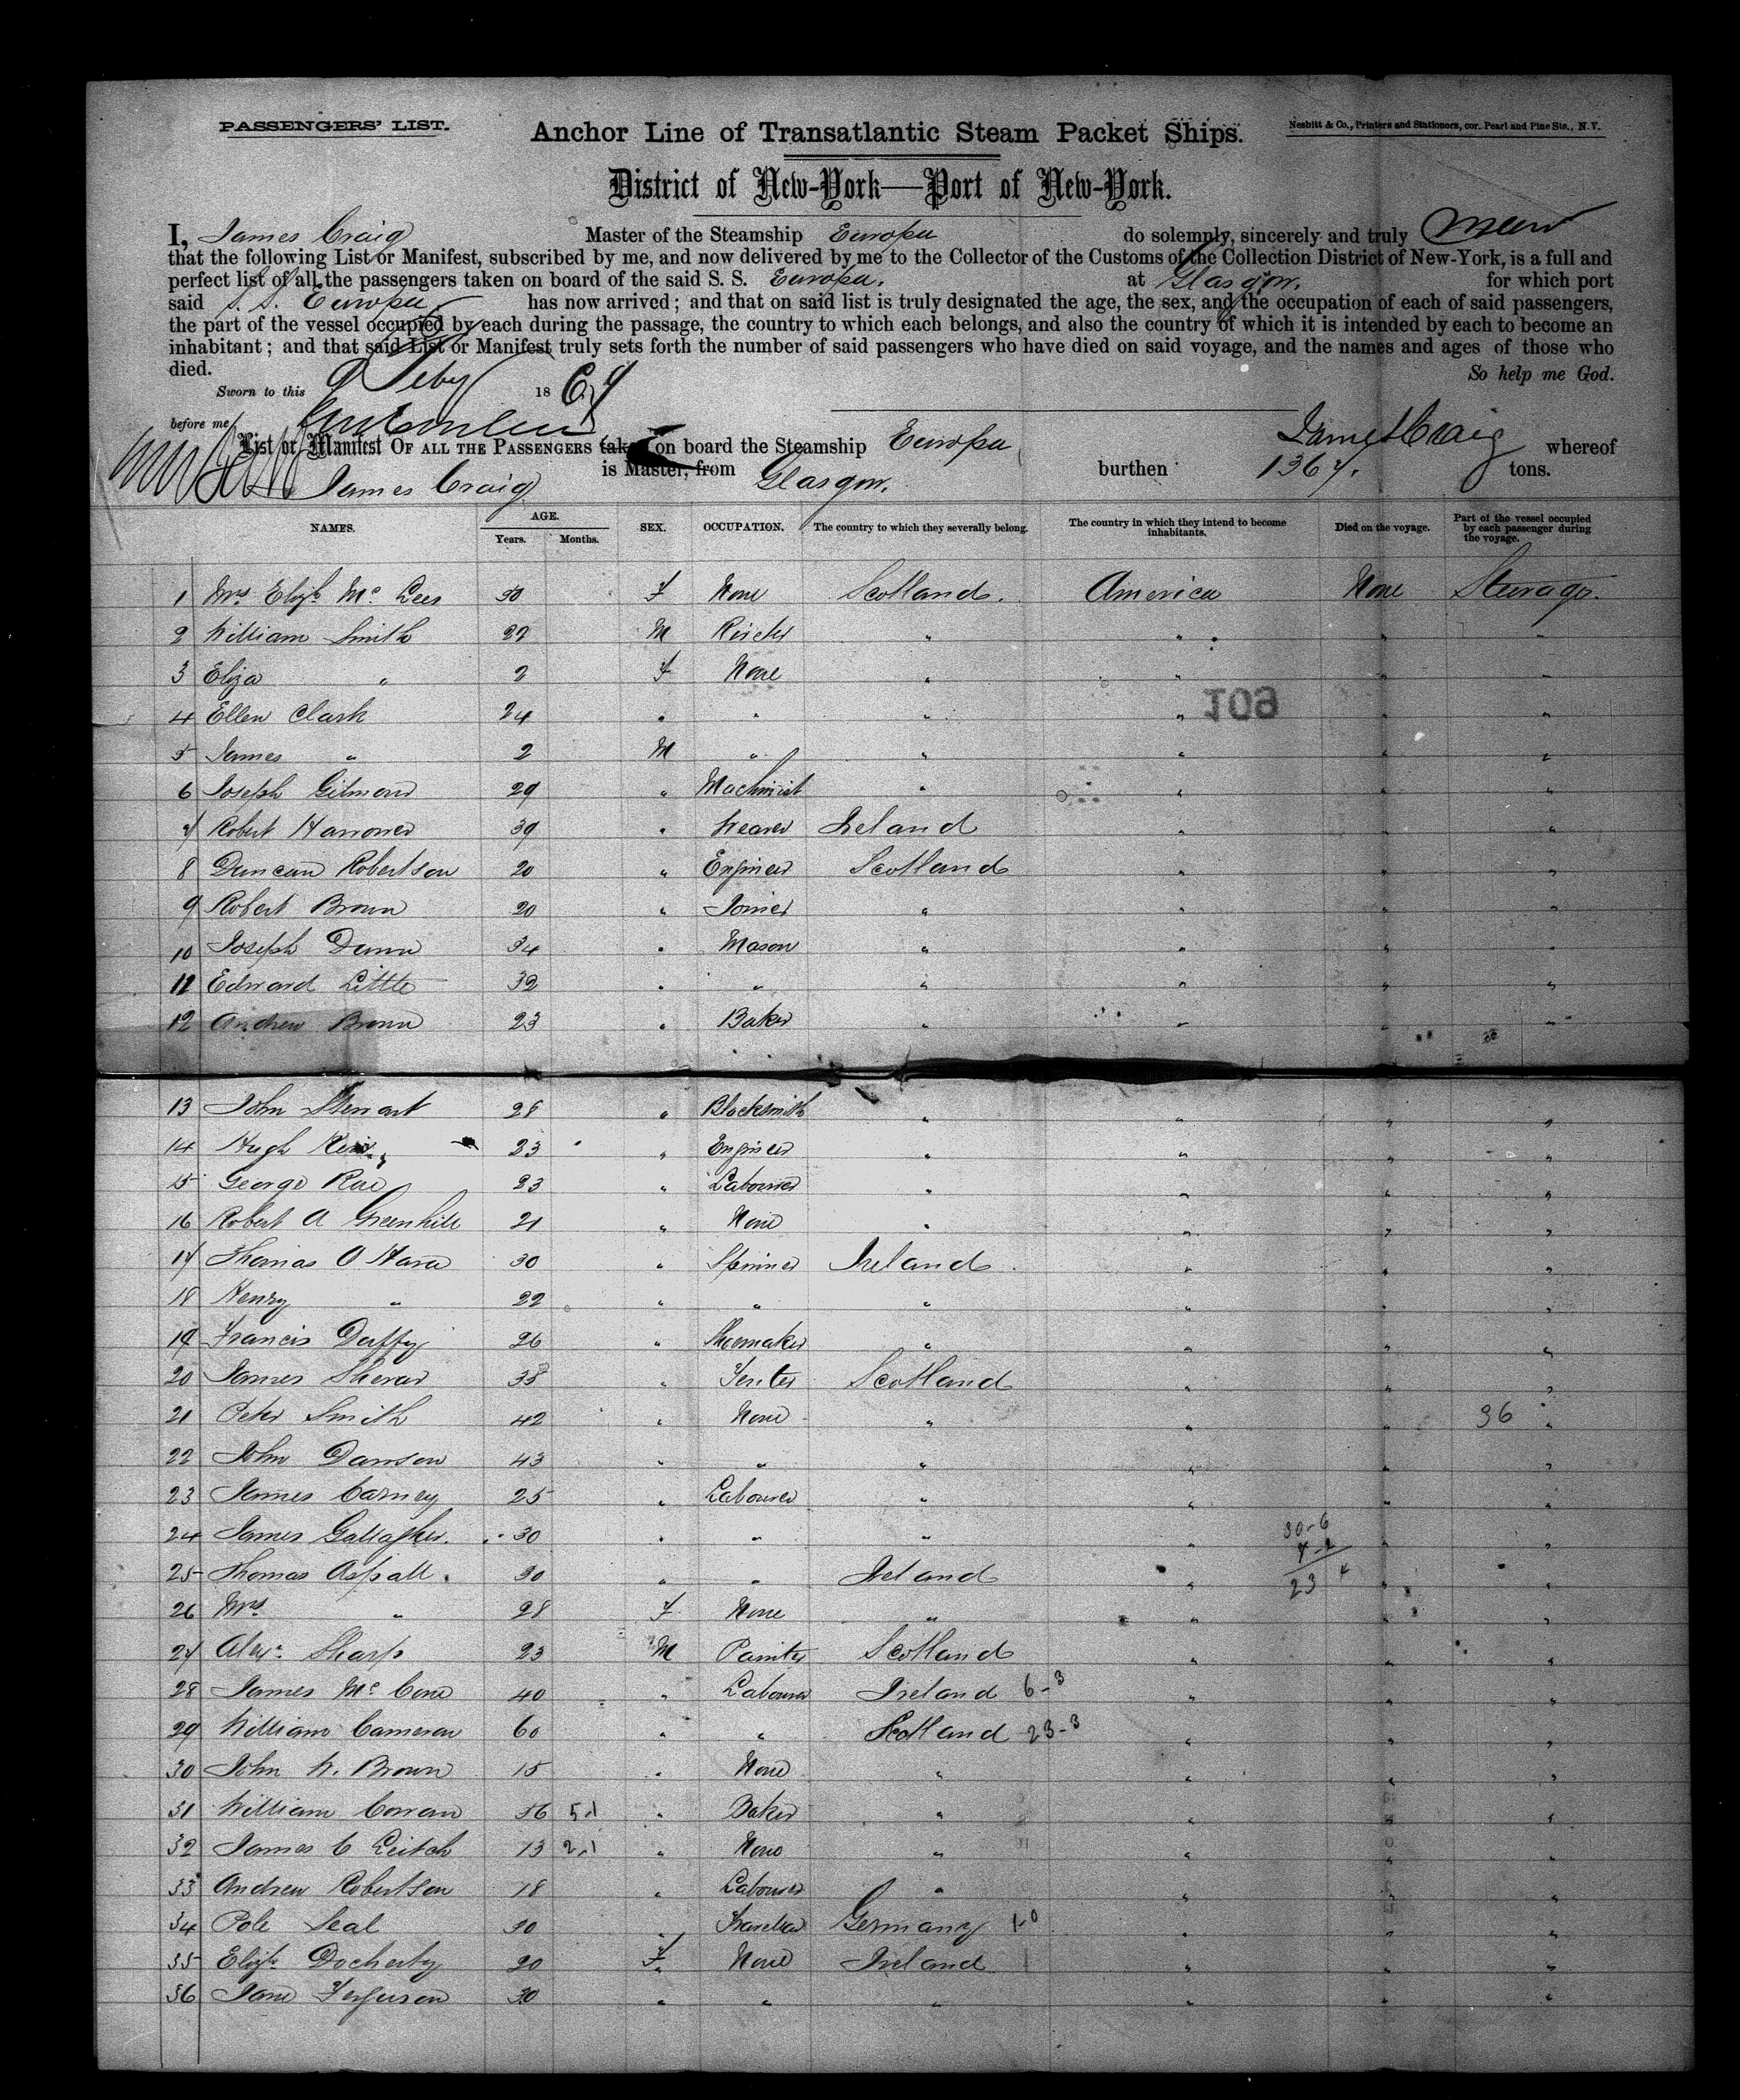 PASSENGERS' LIST.
Anchor Line of Transatlantic Steam Packet Ships.
Nesbitt & Co., Printers and Stationers, cor. Pearl and Pine Sts., N.Y.
District of New-York—Port of New-York.
I, James Craig Master of the Steamship Europa do solemnly, sincerely and truly swear
that the following List or Manifest, subscribed by me, and now delivered by me to the Collector of the Customs of the Collection District of New-York, is a full and
perfect list of all the passengers taken on board of the said S. S. Europa. at Glasgow, for which port
said S. S. Europa has now arrived; and that on said list is truly designated the age, the sex, and the occupation of each of said passengers,
the part of the vessel occupied by each during the passage, the country to which each belongs, and also the country of which it is intended by each to become an
inhabitant; and that said List or Manifest truly sets forth the number of said passengers who have died on said voyage, and the names and ages of those who
died. So help me God.
Sworn to this 9 Feby 1867
before me
James Craig
List or Manifest OF ALL THE PASSENGERS taken on board the Steamship Europa whereof
James Craig is Master, from Glasgow. burthen 1367. tons.
NAMES. AGE. Years. Months. SEX. OCCUPATION. The country to which they severally belong. The country in which they intend to become inhabitants. Died on the voyage. Part of the vessel occupied by each passenger during the voyage.
1 Mrs Elizh. Mc Lees 30 F None Scotland. America None Steerage.
2 William Smith 27 M " " " "
3 Eliza " 2 F None " " " "
109
4 Ellen Clark 24 " " " " " "
5 James " 2 M " " " " "
6 Joseph Gilmour 29 " Machinist " " " "
7 Robert Harrower 39 " Weaver Ireland " " "
8 Duncan Robertson 20 " Engineer Scotland " " "
9 Robert Brown 20 " Joiner " " " "
10 Joseph Dunn 34 " Mason " " " "
11 Edward Little 32 " " " " " "
12 Andrew Brown 23 " Baker " " " "
13 John Stewart 28 " Blacksmith " " " "
14 Hugh 23 " Engineer " " " "
15 George Rae 23 " Labourer " " " "
16 Robert A Greenhill 21 " None " " " "
17 Thomas O Hara 30 " Spinner Ireland " " "
18 Henry " 22 " " " " " "
19 Francis Duffy 26 " Shoemaker " " " "
20 James Sherar 38 " Tenter Scotland " " "
21 Peter Smith 42 " None " " " 36 "
22 John Dawson 43 " " " " " "
23 James Carney 25 " Labourer " " " "
24 James Gallagher. 30 " " " " " "
30-6
7-2
23 4
25 Thomas Aspall. 30 " " Ireland " " "
26 Mrs " 28 F None " " " "
27 Alexr. Sharp 23 M Painter Scotland " " "
28 James Mc Cone 40 " Labourer Ireland 6-3 " " "
29 William Cameron 60 " " Scotland 23-3 " " "
30 John W. Brown 15 " None " " " "
31 William Cowan 56 5.1 " Baker " " " "
32 James C Leitch 13 2.1 " None " " " "
33 Andrew Robertson 18 " Labourer " " " "
34 Pole Seal 30 " Traveller Germany 1-0 " " "
35 Elizh. Docherty 20 F None Ireland " " "
36 Jane Ferguson 30 " " " " " "